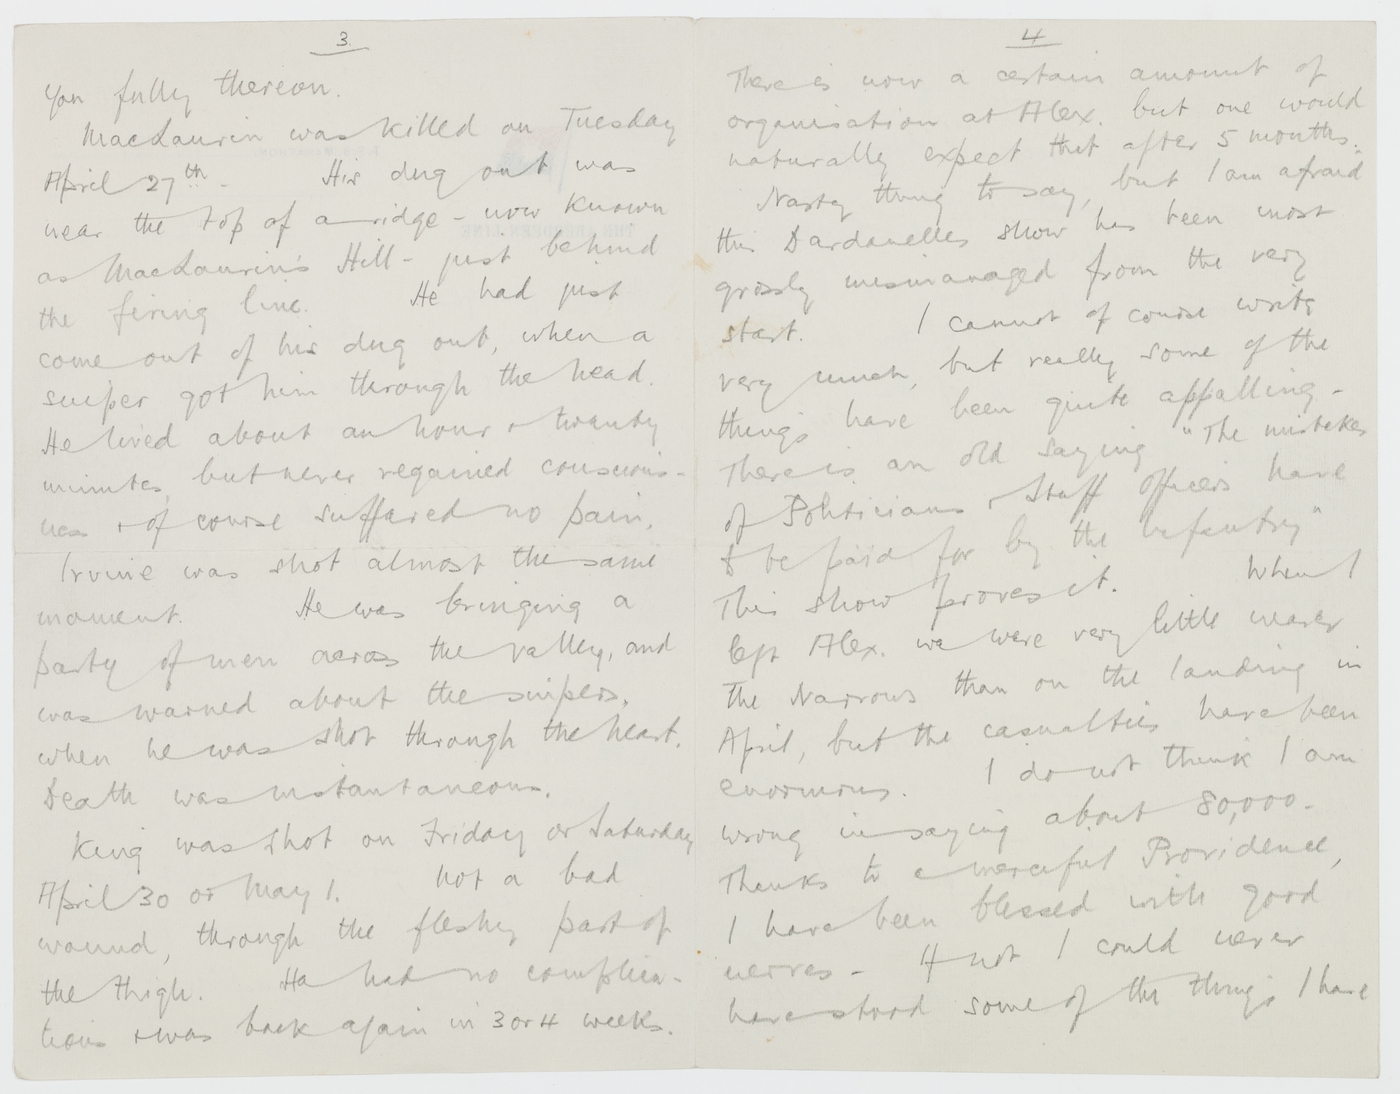 3.
you fully thereon.
MacLaurin was killed on Tuesday
April 27th. His dug out was
near the top of a ridge - now known
as MacLaurin's Hill - just behind
the firing line. He had just
come out of his dug out, when a
sniper got him through the head.
He lived about an hour & twenty
minutes, but never regained conscious-
ness & of course suffered no pain.
Irvine was shot almost the same
moment. He was bringing a
party of men across the valley, and
was warned about the snipers,
when he was shot through the heart.
Death was instantaneous.
King was shot on Friday or Saturday
April 30 or May 1. Not a bad
wound, through the fleshy part of
the thigh. He had no complica-
tions & was back again in 3 or 4 weeks.
4
There is now a certain amount of
organisation at Alex. but one would
naturally expect that after 5 months.
Nasty thing to say, but I am afraid
this Dardanelles show has been most
grossly mismanaged from the very
start. I cannot of course write
very much, but really some of the
things have been quite appalling -
There is an old saying "The mistakes
of Politicians & Staff officers have
to be paid for by the infantry"
This show proves it. When I
left Alex. we were very little nearer
the Narrows than on the landing in
April, but the casualties have been
enormous. I do not think I am
wrong in saying about 80,000.
Thanks to a merciful Providence,
I have been blessed with good
nerves - If not I could never
have stood some of the things I have